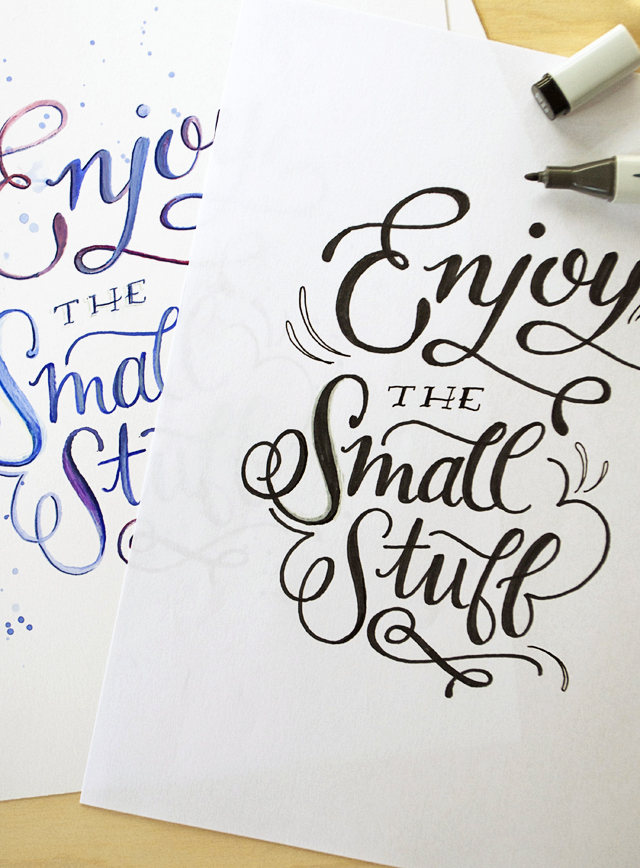 Enjoy
THE
Small
Stuff
Enjo
THE
Smal
St